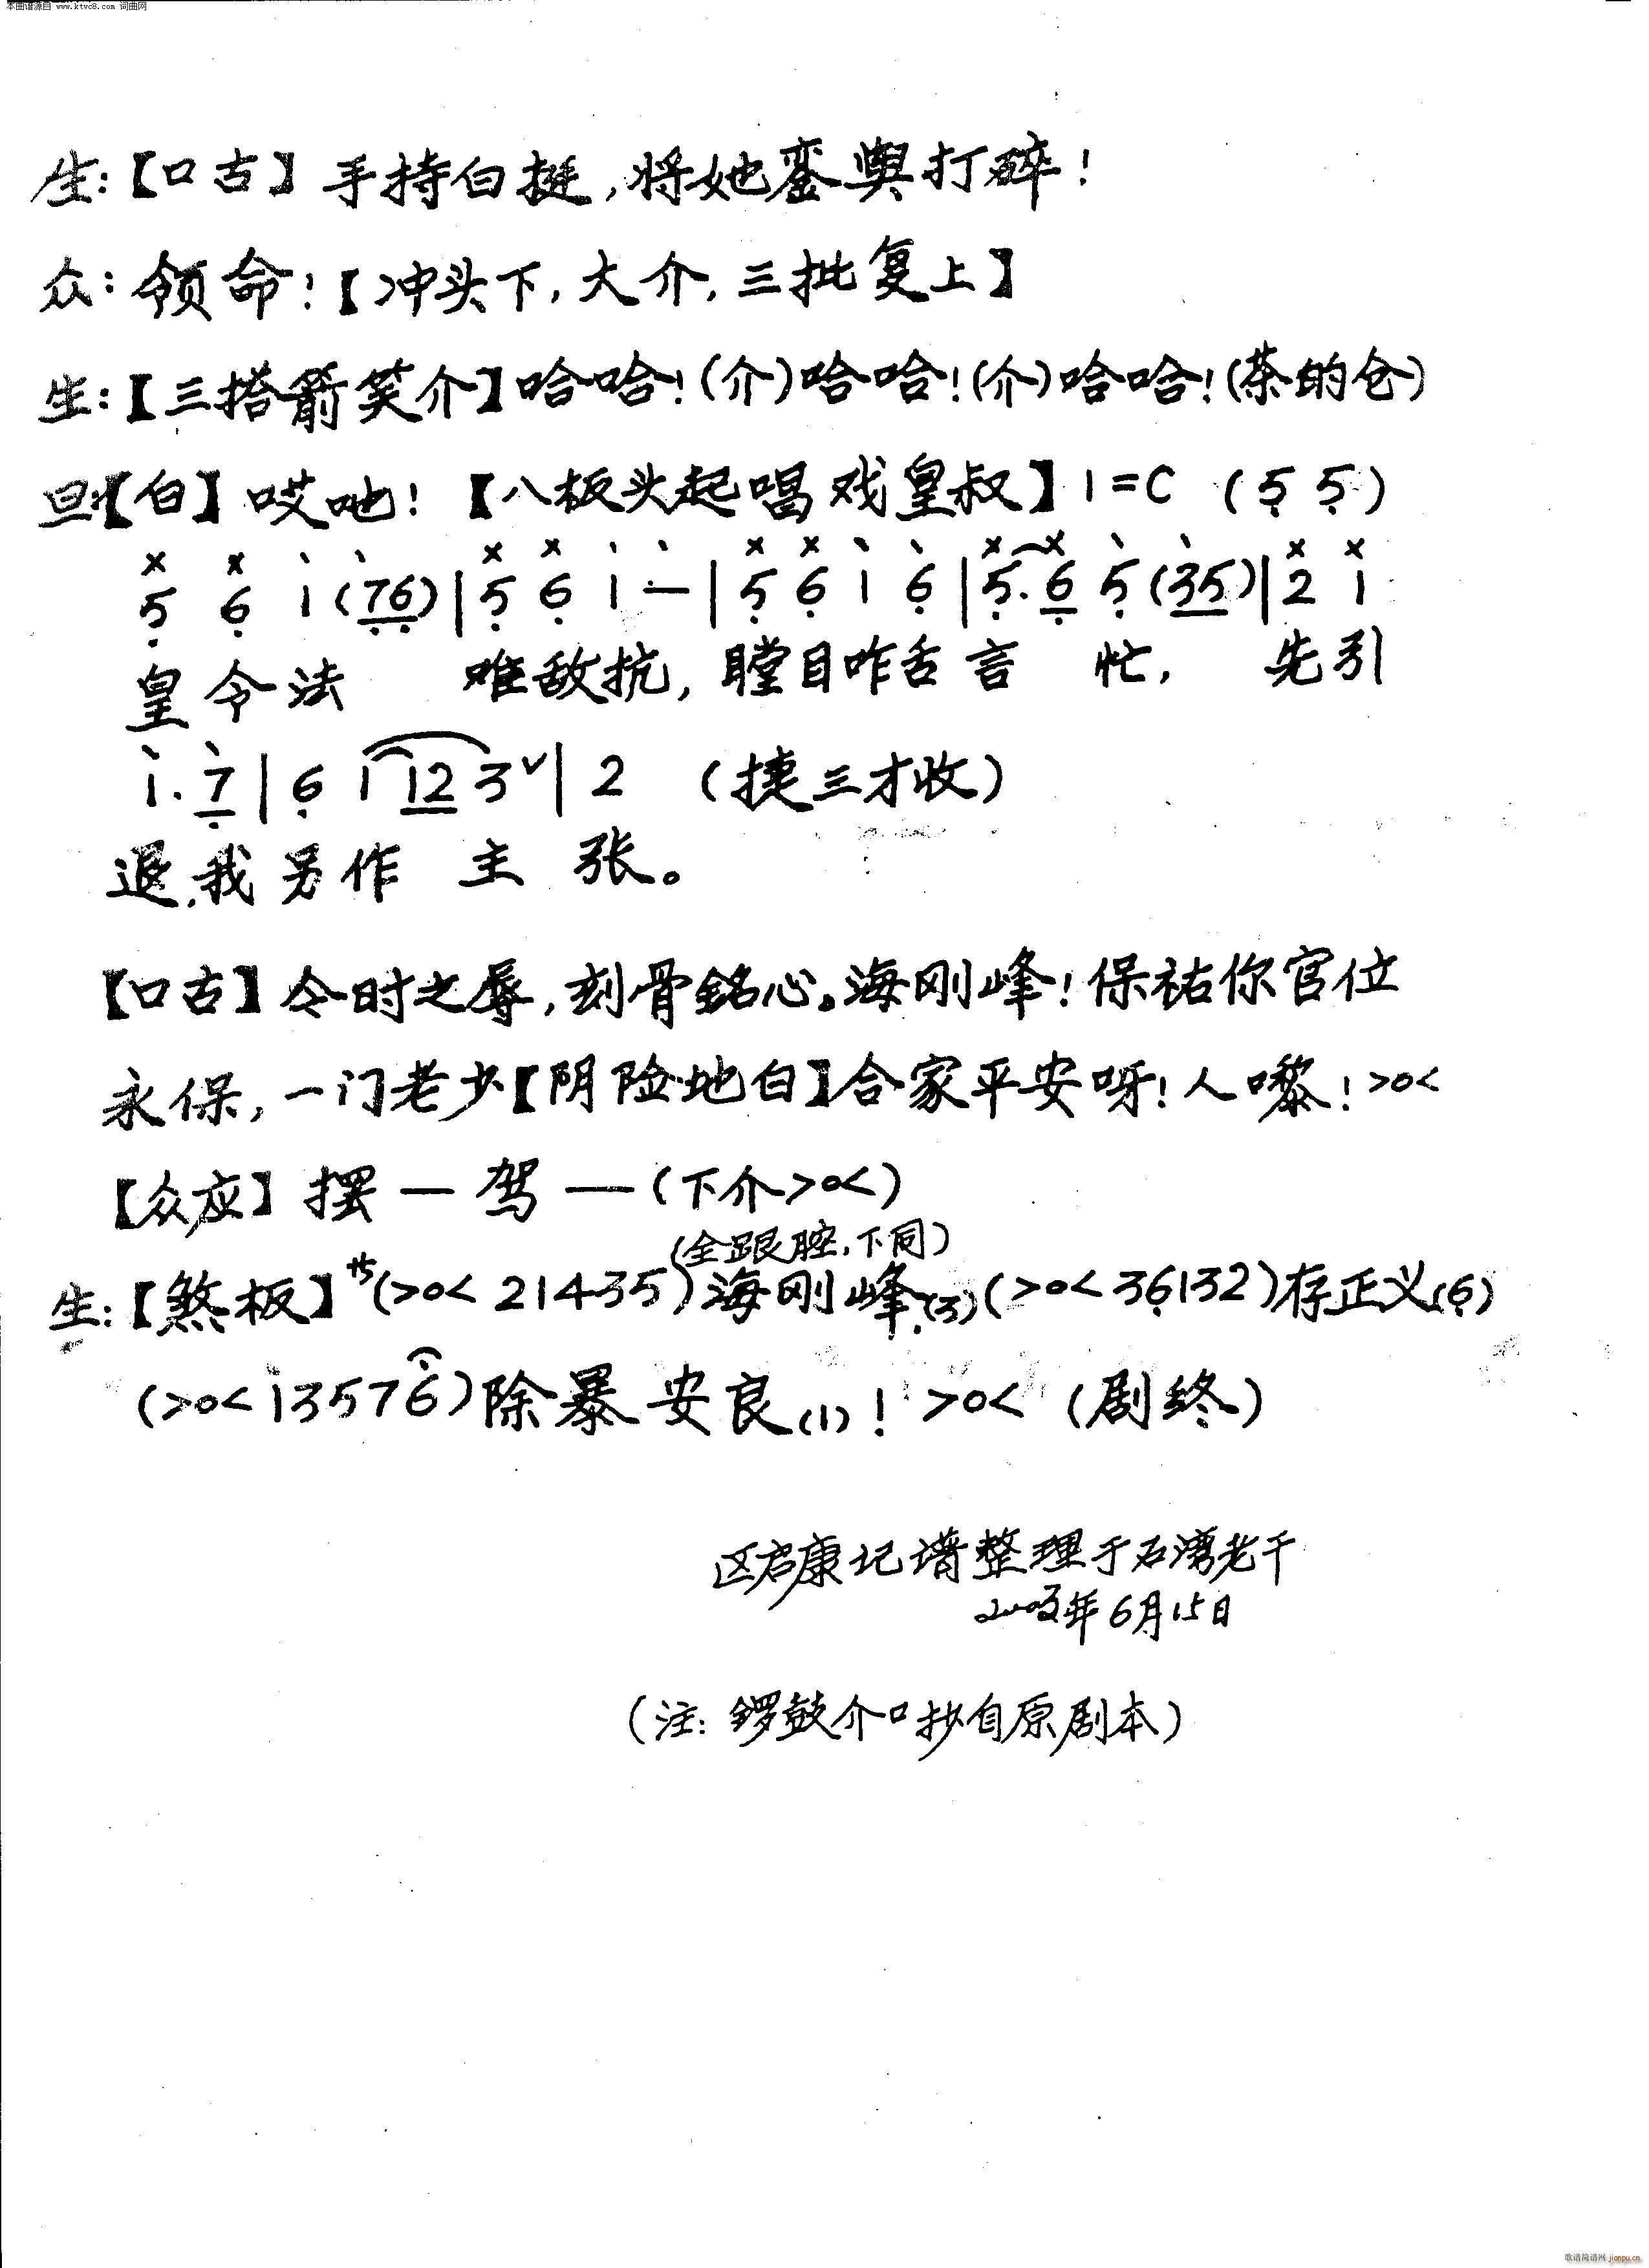 本曲谱源自 www.ktvc8.com 词曲网
生:【口古】手持白梃,将她銮舆打碎!
众:领命!【冲头下,大介,三批复上】
生:【三搭箭笑介】哈哈!(介)哈哈!(介)哈哈!(茶的仓)
旦:【白】哎吔!【八板头起唱戏皇叔】1=C (5̣ 5̣)
5̣ 6̣ 1 (7̣6̣) | 5̣ 6̣ 1 — | 5̣ 6̣ 1 6̣ | 5̣. 6̣ 5̣ (35) | 2 1
皇令法 难敌抗,瞠目咋舌言 忙, 先引
1. 7̣ | 6̣ 1 12 3ˇ | 2 (捷三才收)
退,我另作 主 张。
【口古】今时之辱,刻骨銘心。海刚峰!保祐你官位
永保,一门老少【阴险地白】合家平安呀!人嚟!>o<
【众应】摆 — 驾 — (下介>o<)
(全跟腔,下同)
生:【煞板】サ(>o< 21435)海刚峰(3)(>o< 36̣132)存正义(6̣)
(>o< i3576)除暴安良(1)! >o< (剧终)
区启康记谱整理于石湾老干
年6月15日
(注: 锣鼓介口抄自原剧本)
歌谱简谱网 jianpu.cn